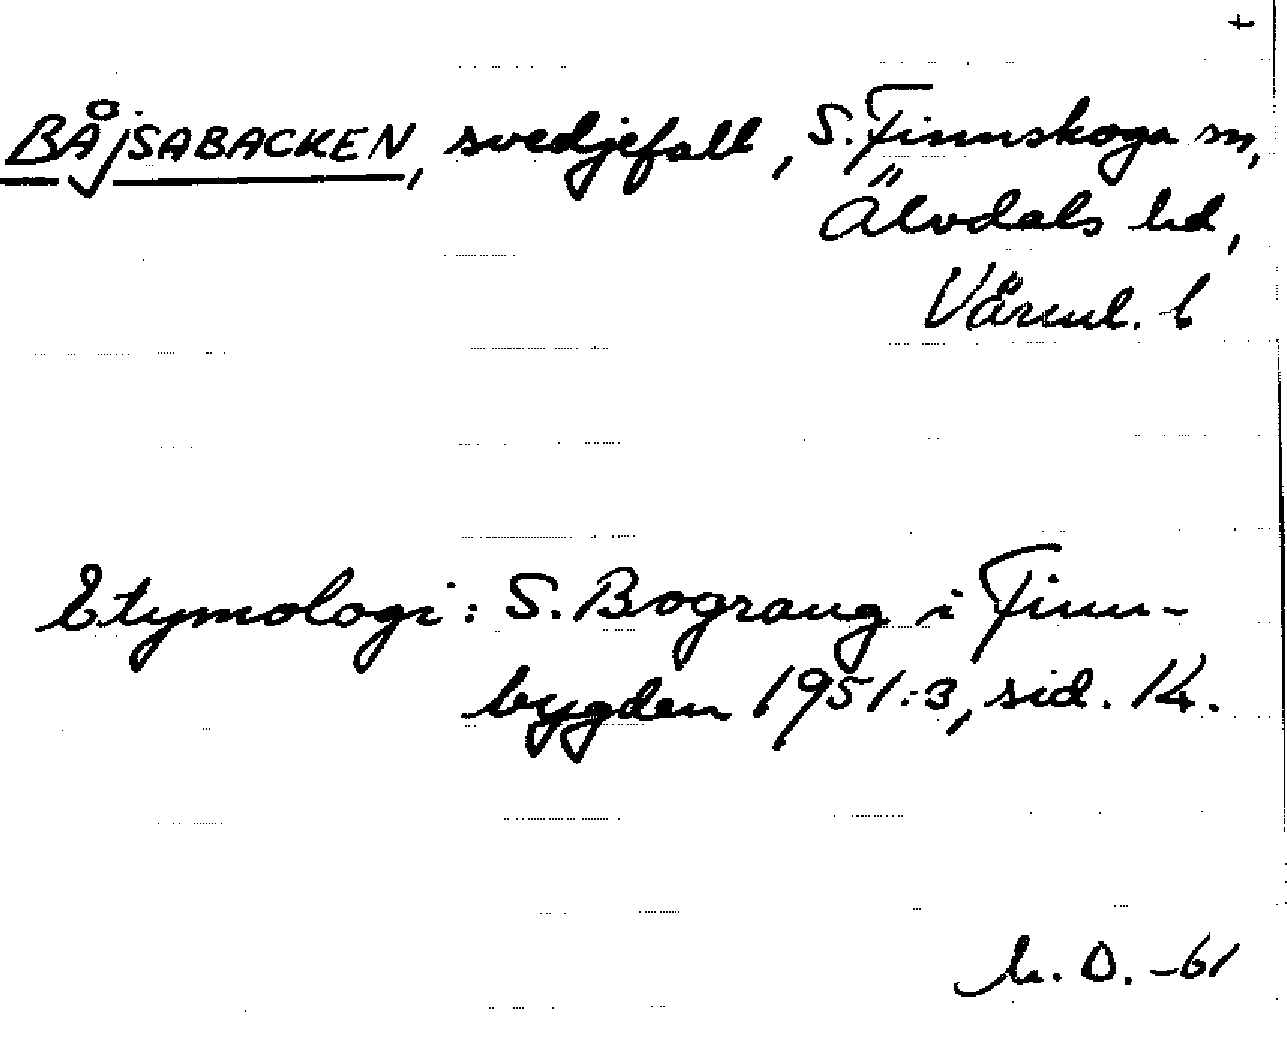 t
BÅjSABACKEN, svedjefall, S. Finnskoga sn,
Älvdals hd,
Värml. l
Etymologi: S. Bograng i Finn-
bygden 1951:3, sid. 14.
h. O. -61